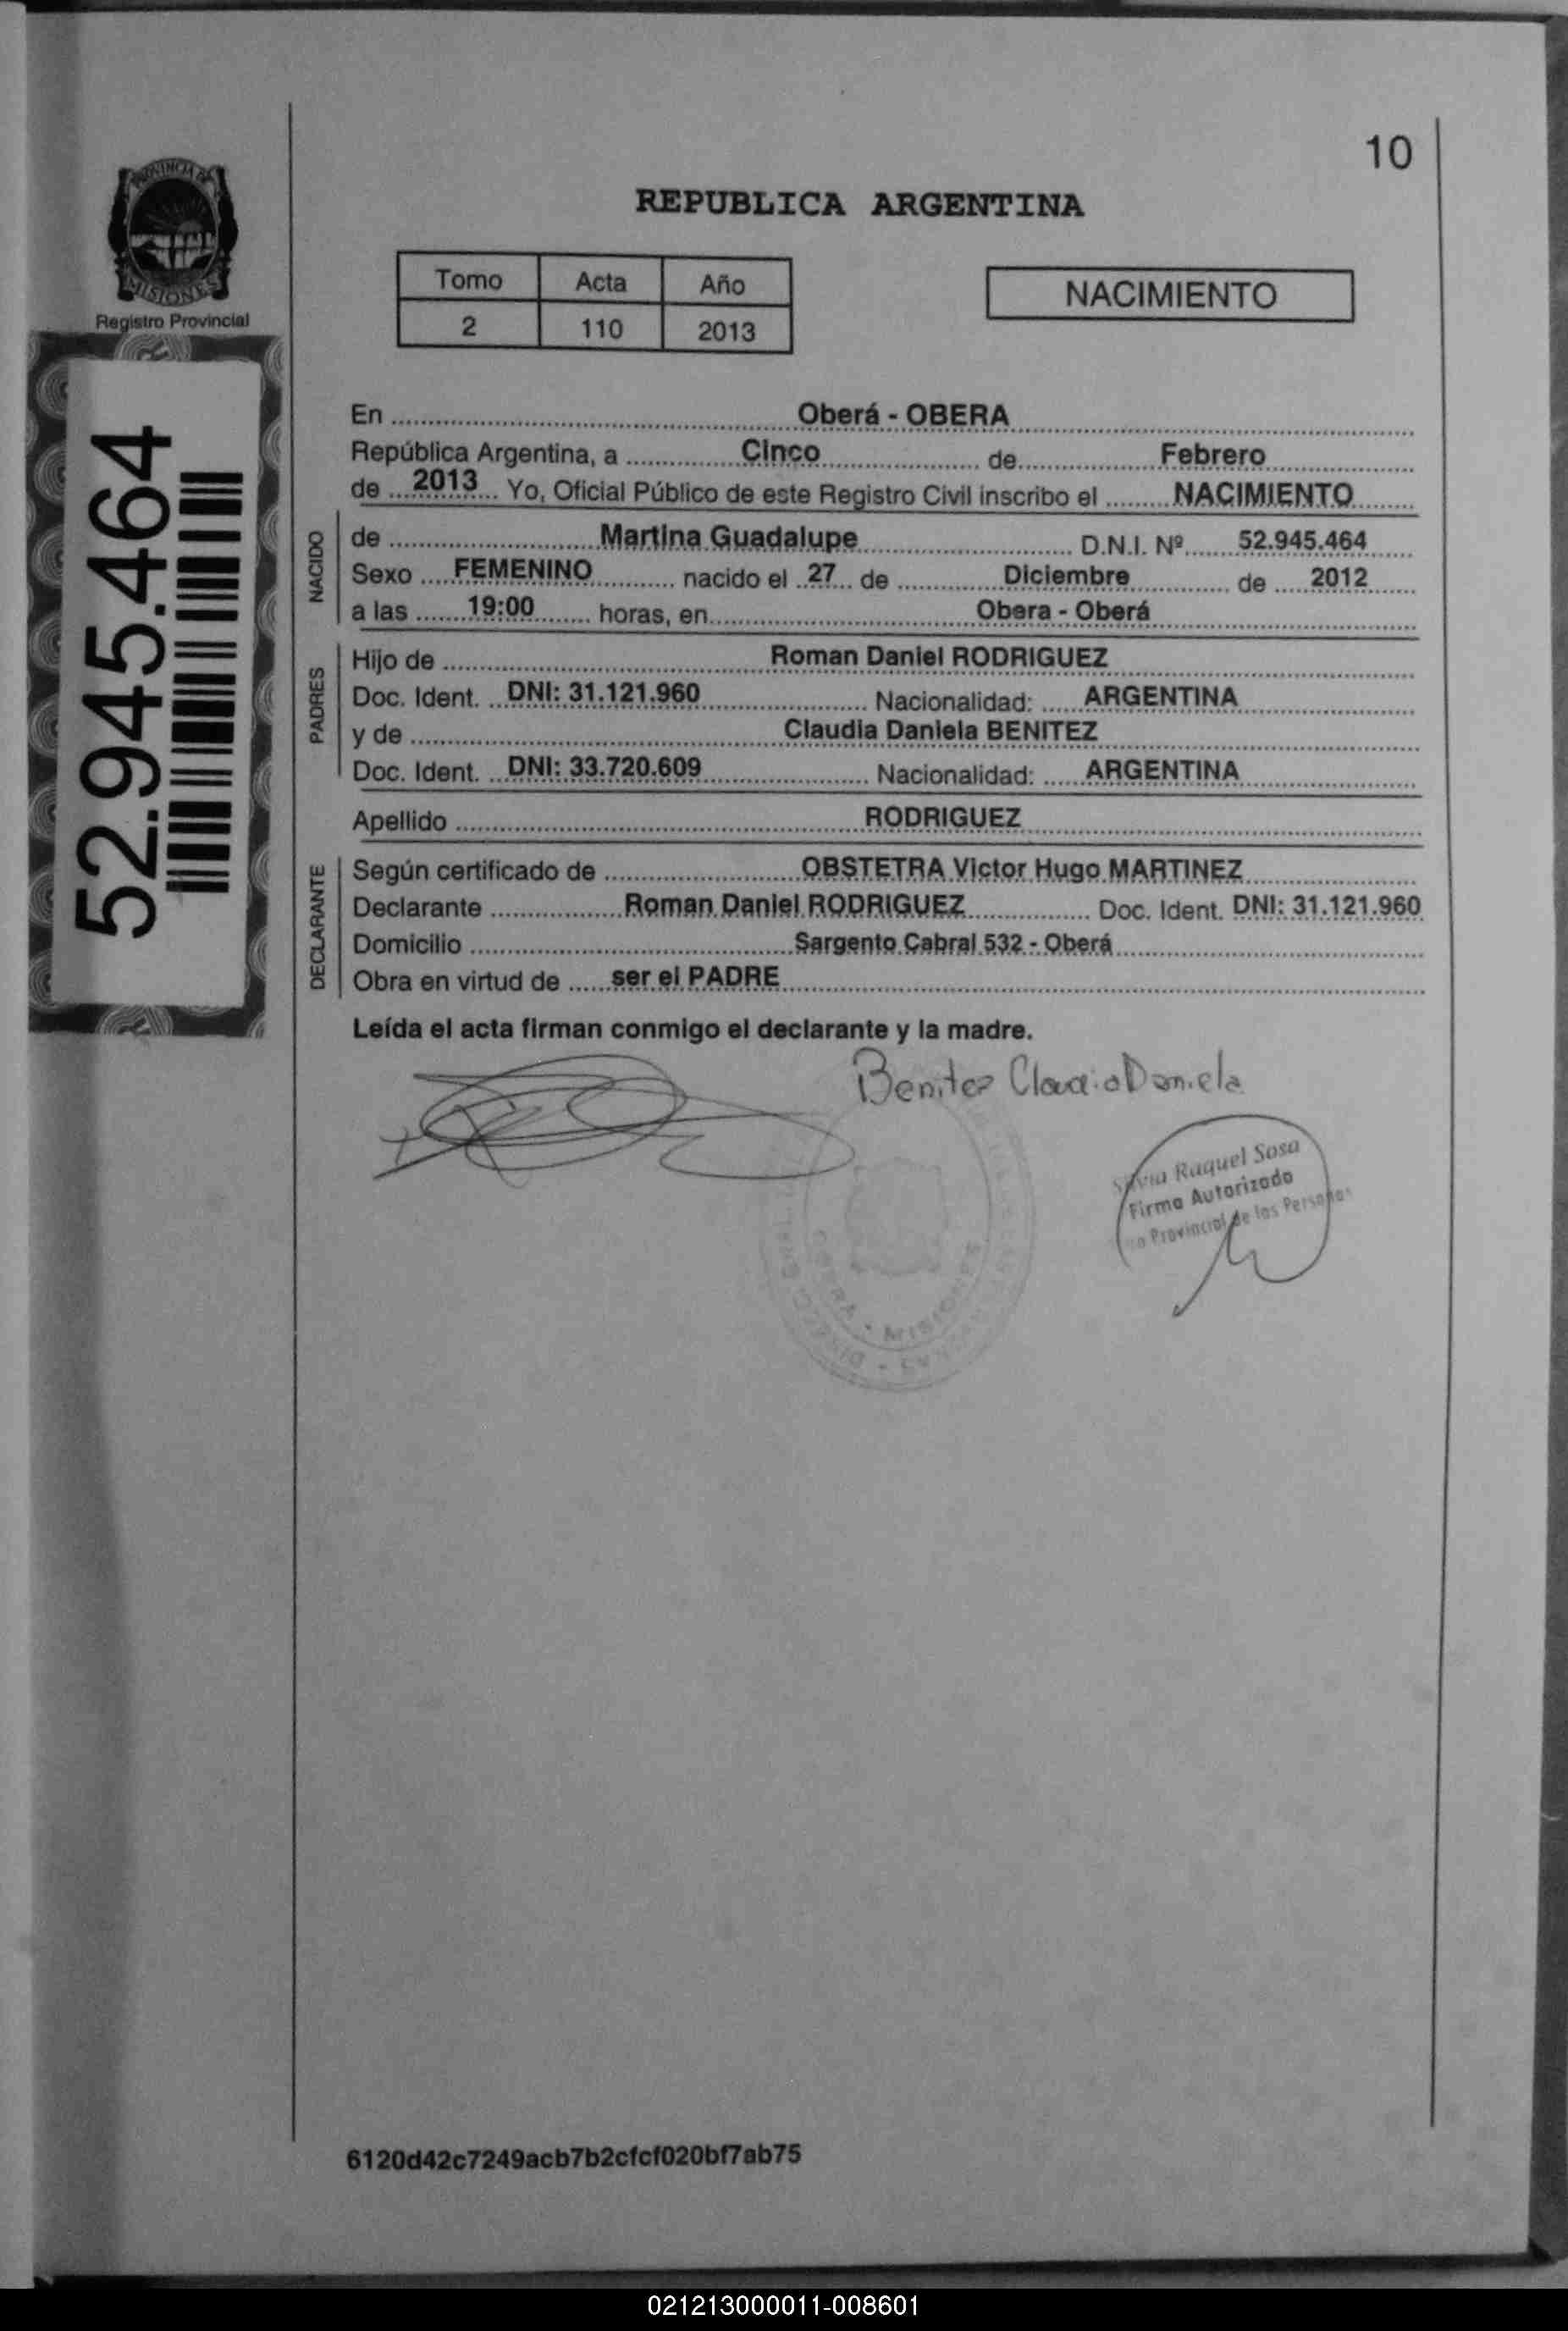 10
PROVINCIA DE
MISIONES
Registro Provincial
REPUBLICA ARGENTINA
Tomo Acta Año
2 110 2013
NACIMIENTO
52.945.464
En Oberá - OBERA
República Argentina, a Cinco de Febrero
de 2013 Yo, Oficial Público de este Registro Civil inscribo el NACIMIENTO
NACIDO
de Martina Guadalupe D.N.I. Nº 52.945.464
Sexo FEMENINO nacido el 27 de Diciembre de 2012
a las 19:00 horas, en Obera - Oberá
PADRES
Hijo de Roman Daniel RODRIGUEZ
Doc. Ident. DNI: 31.121.960 Nacionalidad: ARGENTINA
y de Claudia Daniela BENITEZ
Doc. Ident. DNI: 33.720.609 Nacionalidad: ARGENTINA
Apellido RODRIGUEZ
DECLARANTE
Según certificado de OBSTETRA Victor Hugo MARTINEZ
Declarante Roman Daniel RODRIGUEZ Doc. Ident. DNI: 31.121.960
Domicilio Sargento Cabral 532 - Oberá
Obra en virtud de ser el PADRE
Leída el acta firman conmigo el declarante y la madre.
Benitez Claudia Daniela
Silvia Raquel Sosa
Firma Autorizada
Provincial de las Personas
OBERA - MISIONES
6120d42c7249acb7b2cfcf020bf7ab75
021213000011-008601